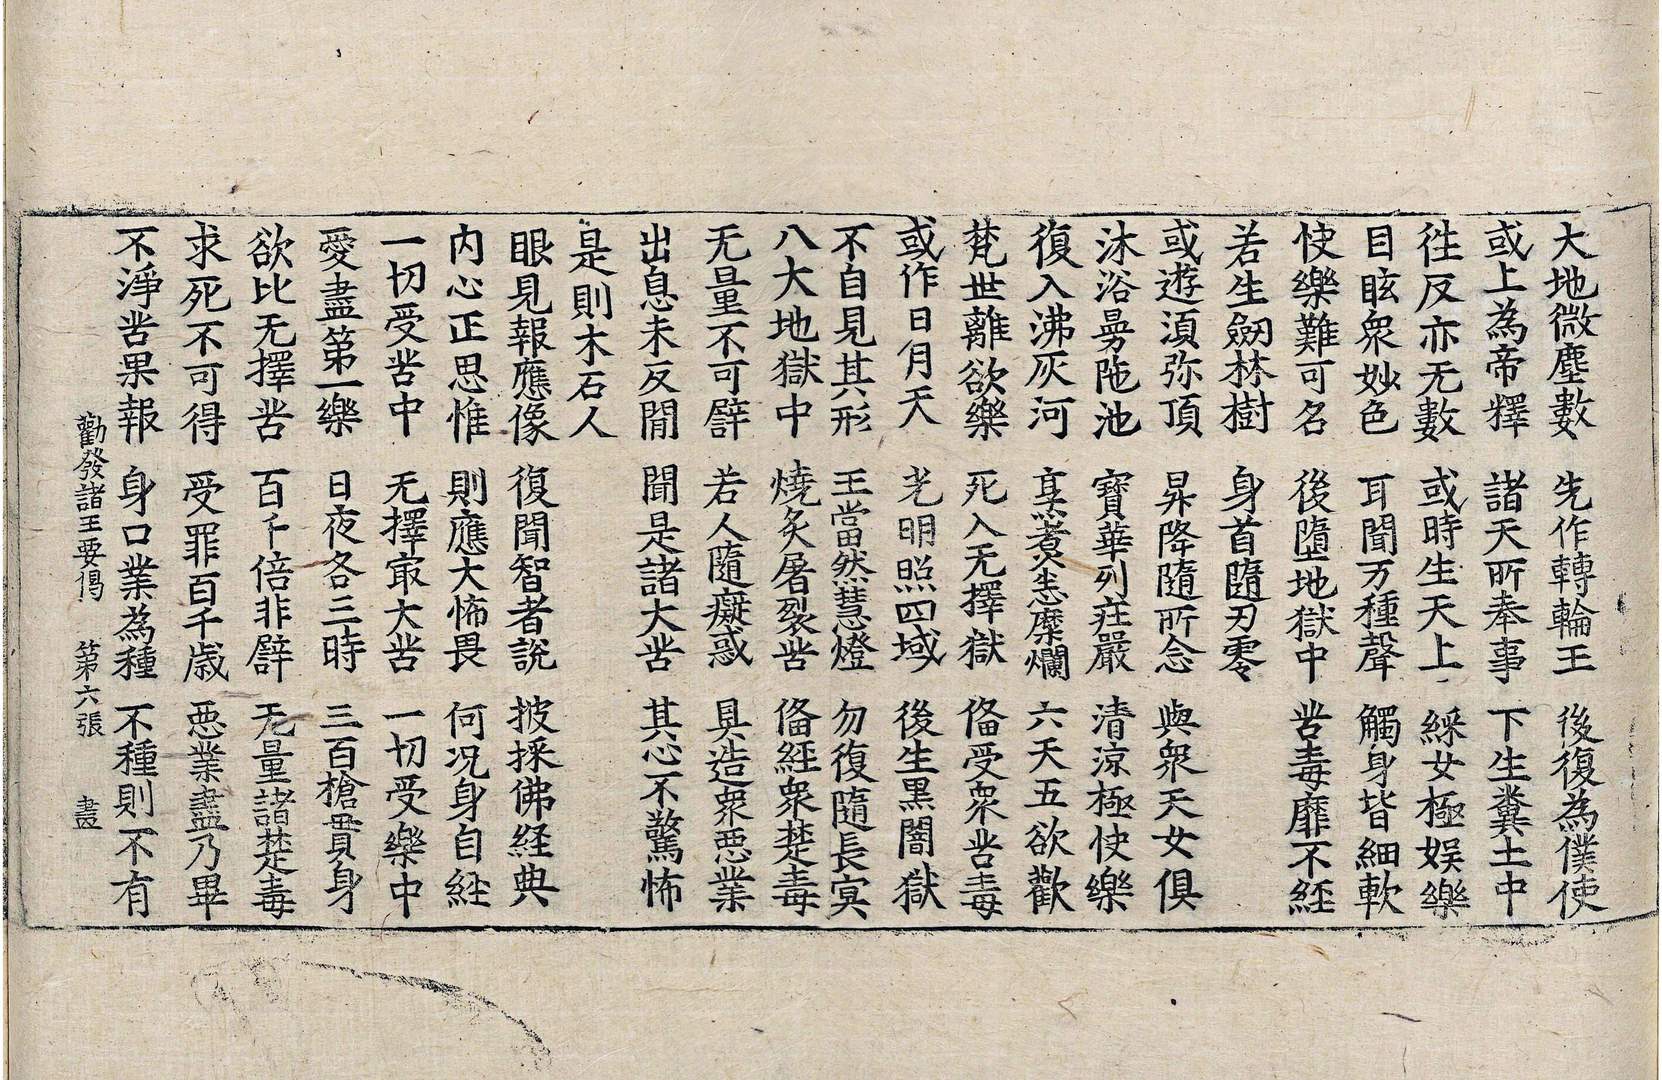 大地微塵數　先作轉輪王　後復為僕使
或上為帝釋　諸天所奉事　下生糞土中
徃反亦无數　或時生天上　綵女極娛樂
目眩衆妙色　耳聞万種聲　觸身皆細軟
快樂難可名　後墮地獄中　苦毒靡不經
若生劒林樹　身首隨刃零
或遊湏弥頂　昇降隨所念　與衆天女俱
沐浴曼陁池　寶華列莊嚴　清涼極快樂
復入沸灰河　烹煑悉糜爛　六天五欲歡
梵世離欲樂　死入无擇獄　俻受衆苦毒
或作日月天　光明照四域　後生黑闇獄
不自見其形　王當然慧燈　勿復隨長㝠
八大地獄中　燒炙屠裂苦　俻經衆楚毒
无量不可譬　若人隨癡惑　具造衆惡業
出息未反閒　聞是諸大苦　其心不驚怖
是則木石人
眼見報應像　復聞智者說　披採佛經典
内心正思惟　則應大怖畏　何況身自經
一切受苦中　无擇㝡大苦　一切受樂中
愛盡第一樂　日夜各三時　三百槍貫身
欲比无擇苦　百千倍非譬　无量諸楚毒
求死不可得　受罪百千歲　惡業盡乃畢
不淨苦果報　身口業為種　不種則不有
勸發諸王要偈　第六張　畫